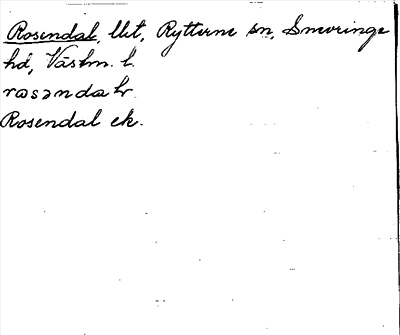 Rosendal, llt, Rytterne sn, Snevringe
hd, Västm. l.
rosəndaɫr.
Rosendal ek.